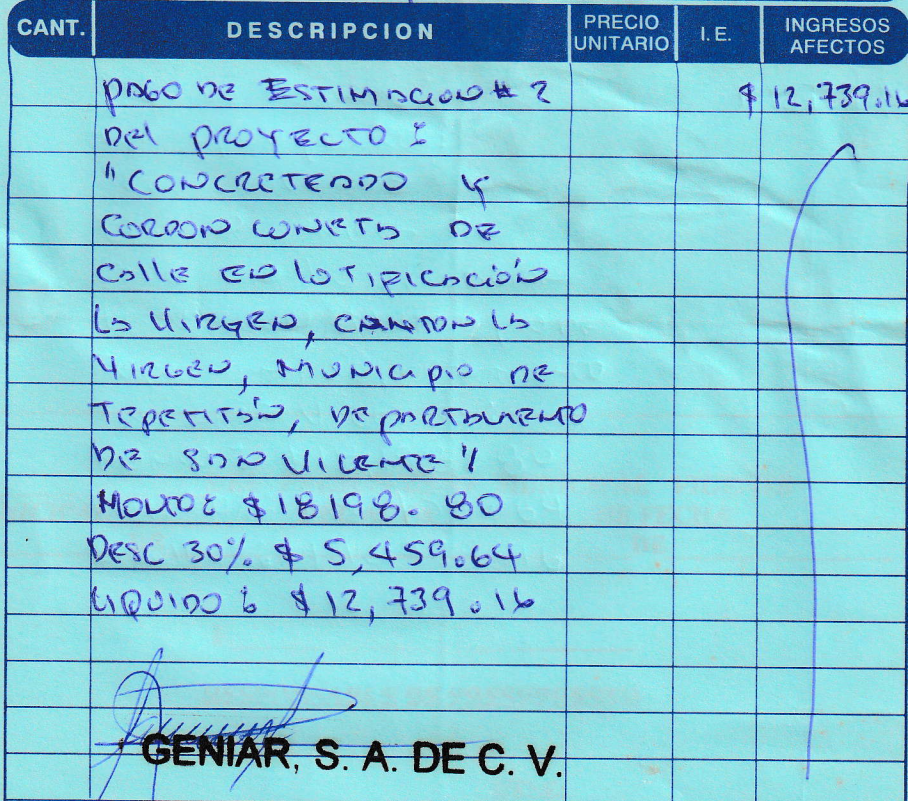 CANT. DESCRIPCION PRECIO UNITARIO I. E. INGRESOS AFECTOS
PAGO DE ESTIMACION # 2 $ 12,739.16
DEL PROYECTO :
"CONCRETEADO Y
CORDON CUNETA DE
CALLE EN LOTIFICACIÓN
LA VIRGEN, CANTON LA
VIRGEN, MUNICIPIO DE
TEPETITÁN, DEPARTAMENTO
DE SAN VICENTE"
MONTO: $ 18198.80
DESC 30% $ 5,459.64
LIQUIDO: $ 12,739.16
GENIAR, S. A. DE C. V.